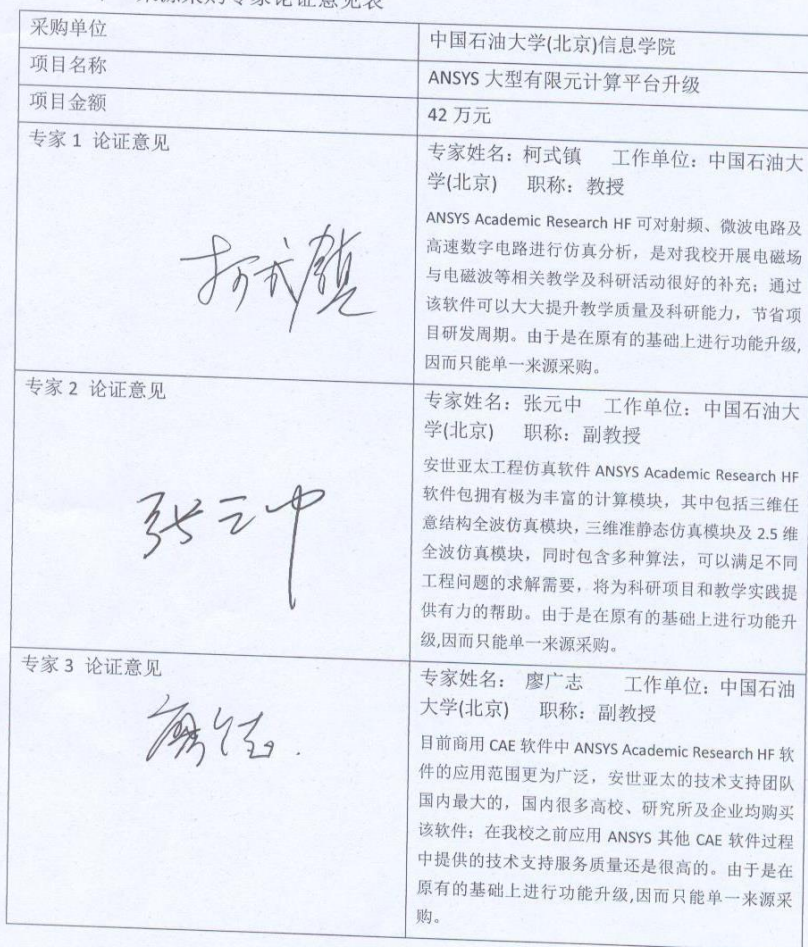 来源采购专家论证意见表
采购单位
中国石油大学(北京)信息学院
项目名称
ANSYS 大型有限元计算平台升级
项目金额
42 万元
专家 1 论证意见
柯式镇
专家姓名：柯式镇 工作单位：中国石油大
学(北京) 职称：教授
ANSYS Academic Research HF 可对射频、微波电路及
高速数字电路进行仿真分析，是对我校开展电磁场
与电磁波等相关教学及科研活动很好的补充；通过
该软件可以大大提升教学质量及科研能力，节省项
目研发周期。由于是在原有的基础上进行功能升级,
因而只能单一来源采购。
专家 2 论证意见
张元中
专家姓名：张元中 工作单位：中国石油大
学(北京) 职称：副教授
安世亚太工程仿真软件 ANSYS Academic Research HF
软件包拥有极为丰富的计算模块，其中包括三维任
意结构全波仿真模块，三维准静态仿真模块及 2.5 维
全波仿真模块，同时包含多种算法，可以满足不同
工程问题的求解需要，将为科研项目和教学实践提
供有力的帮助。由于是在原有的基础上进行功能升
级,因而只能单一来源采购。
专家 3 论证意见
廖广志
专家姓名： 廖广志 工作单位：中国石油
大学(北京) 职称：副教授
目前商用 CAE 软件中 ANSYS Academic Research HF 软
件的应用范围更为广泛，安世亚太的技术支持团队
国内最大的，国内很多高校、研究所及企业均购买
该软件；在我校之前应用 ANSYS 其他 CAE 软件过程
中提供的技术支持服务质量还是很高的。由于是在
原有的基础上进行功能升级,因而只能单一来源采
购。